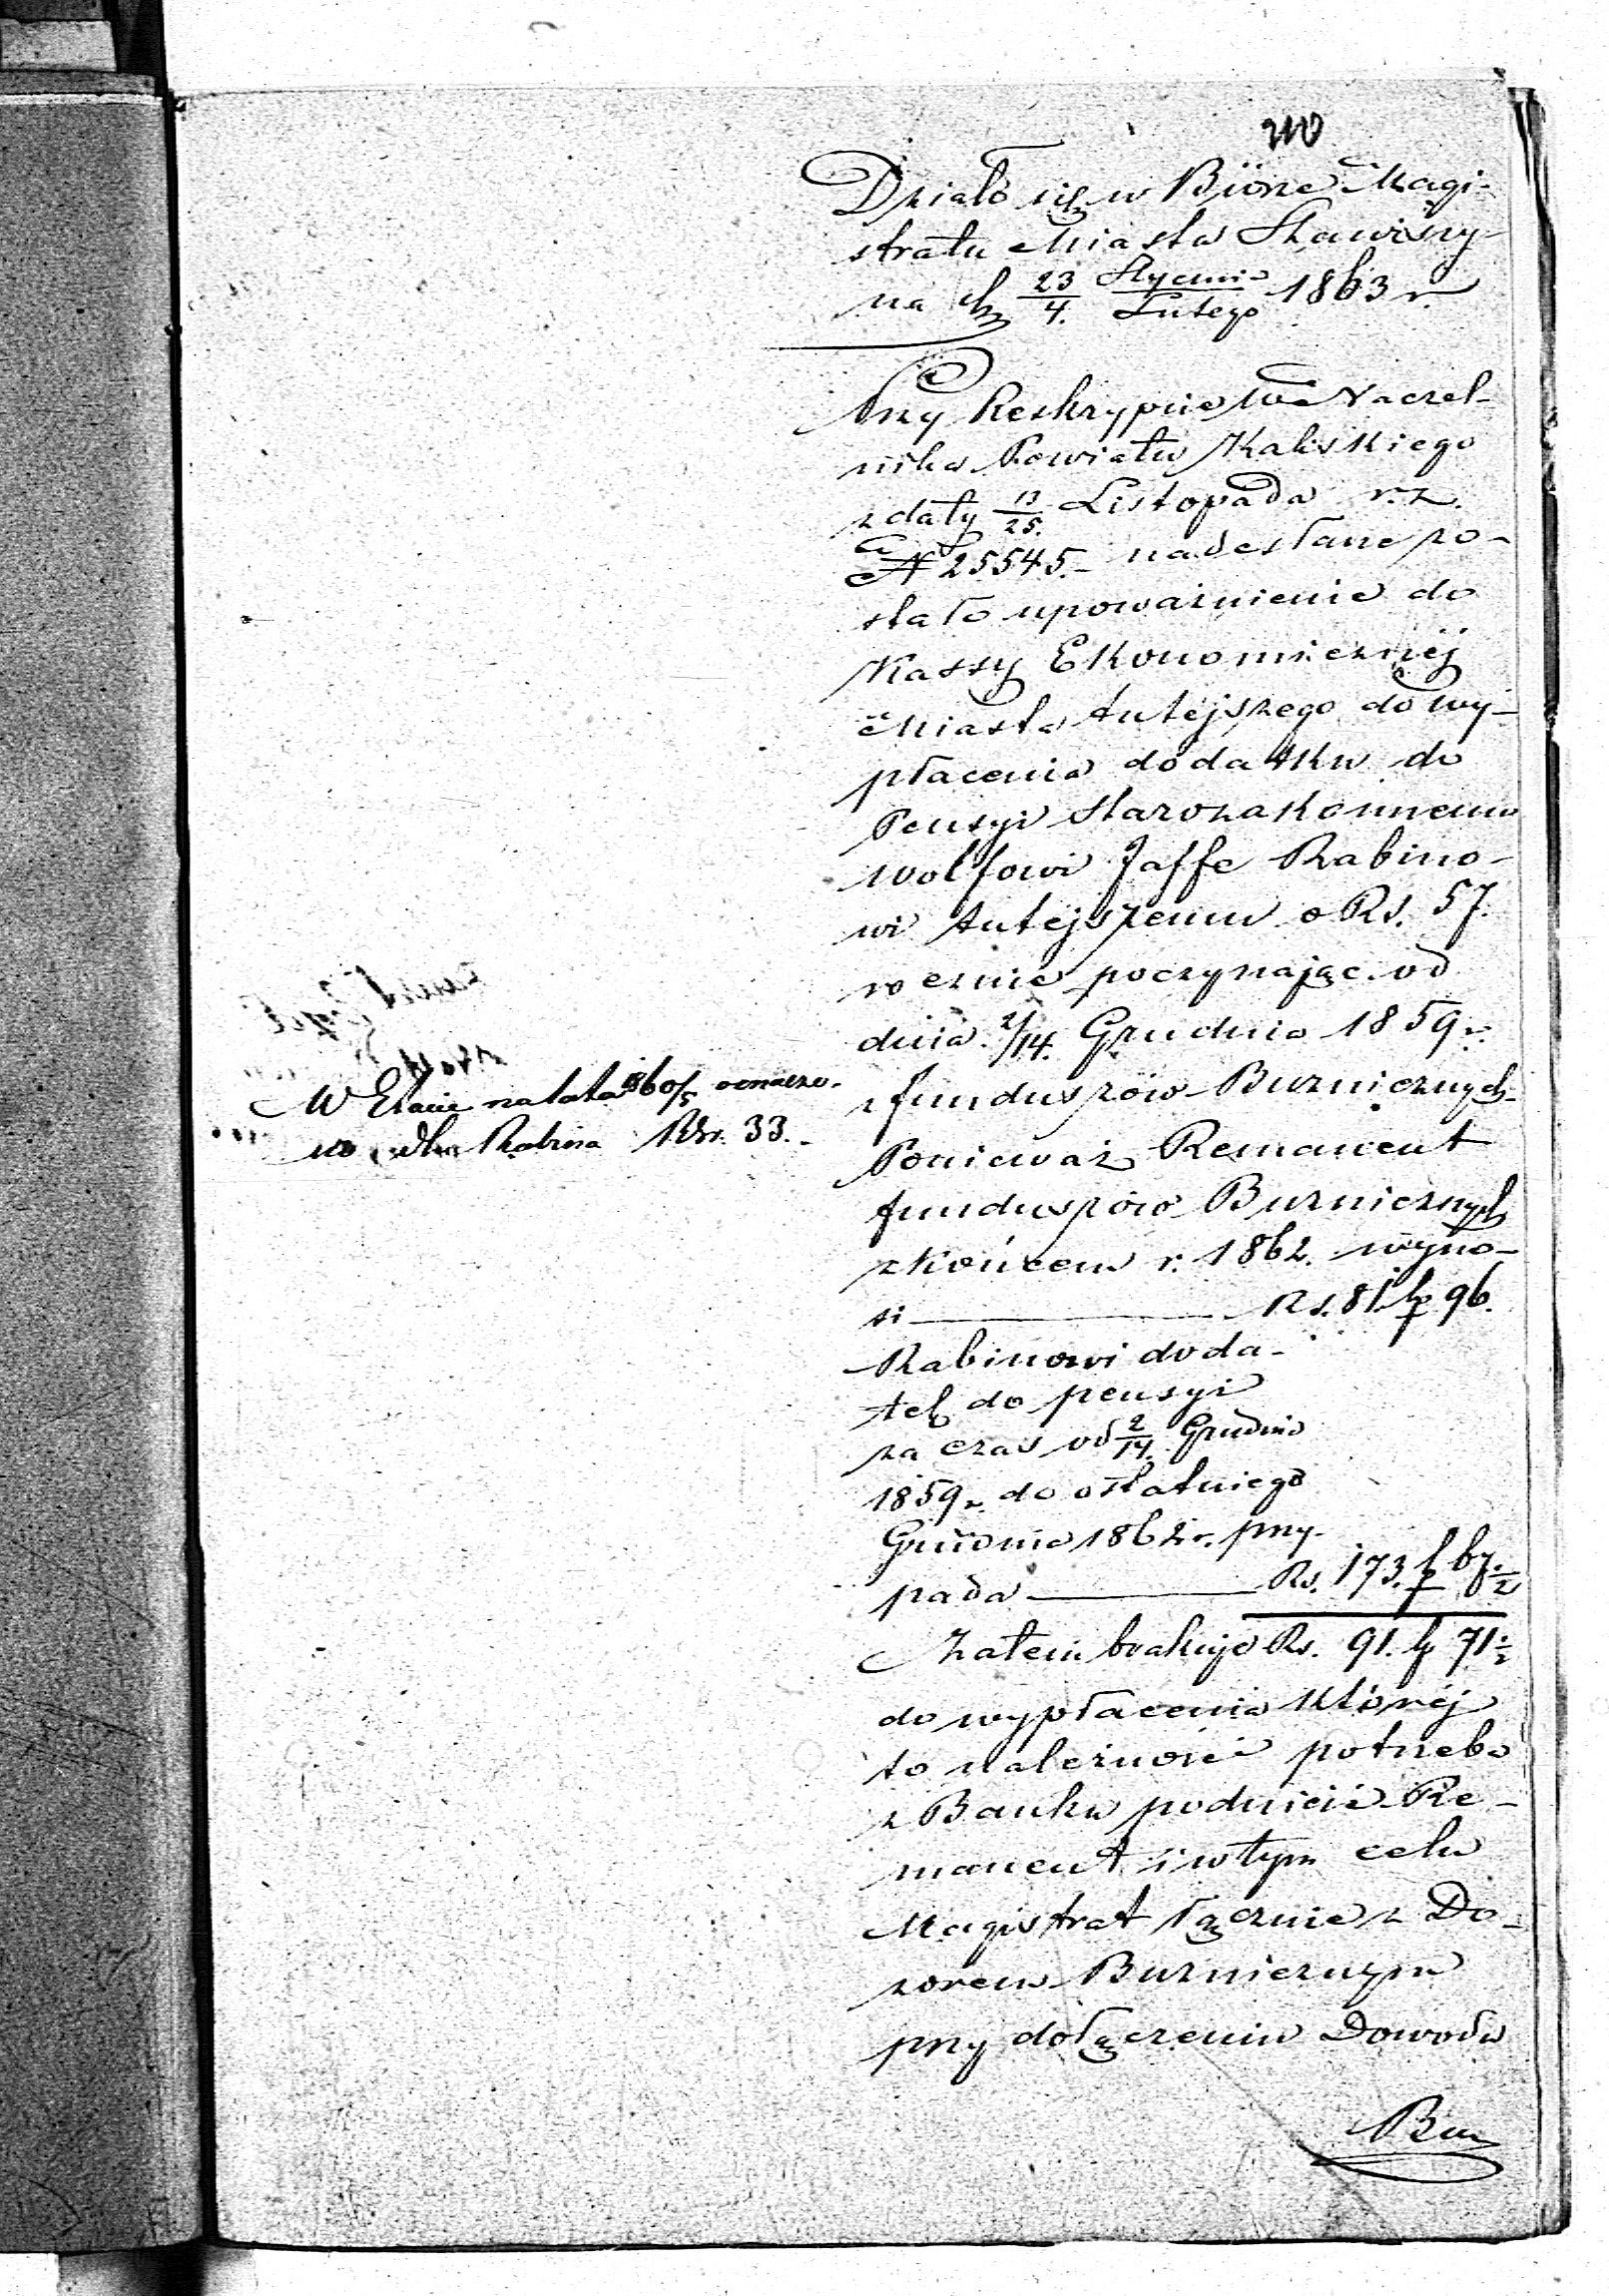 210
Działo się w Biórze Magi-
stratu Miasta Stawiszy-
na d. 23/4. Stycznia/Lutego 1863 r
Przy Reskrypcie Wo Naczel-
nika Powiatu Kaliskiego
z daty 13/25. Listopada r. z.
№ 25545.- nadesłane zo-
stało upoważnienie do
Kassy Ekonomicznéj
Miasta tutejszego do wy-
płacenia dodatku do
Pensyi Starozakonnemu
Wolfowi Jaffe Rabino-
wi tutejszemu o Rs. 57.
rocznie poczynając od
dnia 2/14. Grudnia 1859 r.
z funduszów Bużnicznych-
Ponieważ Remanent
funduszów Bużnicznych
z końcem r. 1862. wyno-
si Rs. 81 kp 96.
Rabinowi doda-
tek do pensyi
za czas od 2/14. Grudnia
1859 r. do ostatniego
Grudnia 1862 r. przy-
pada Rs. 173. kp 67 1/2
Zatem brakuje Rs. 91. kp 71 1/2
do wypłacenia któréj
to należności potrzeba
z Banku podnieść Re-
manent i w tym celu
Magistrat łącznie z Do-
zorem Bużnicznym
przy dołączeniu Dowodu
W Etacie na lata 860/5 oznaczo-
no dla Rabina Rsr. 33.-